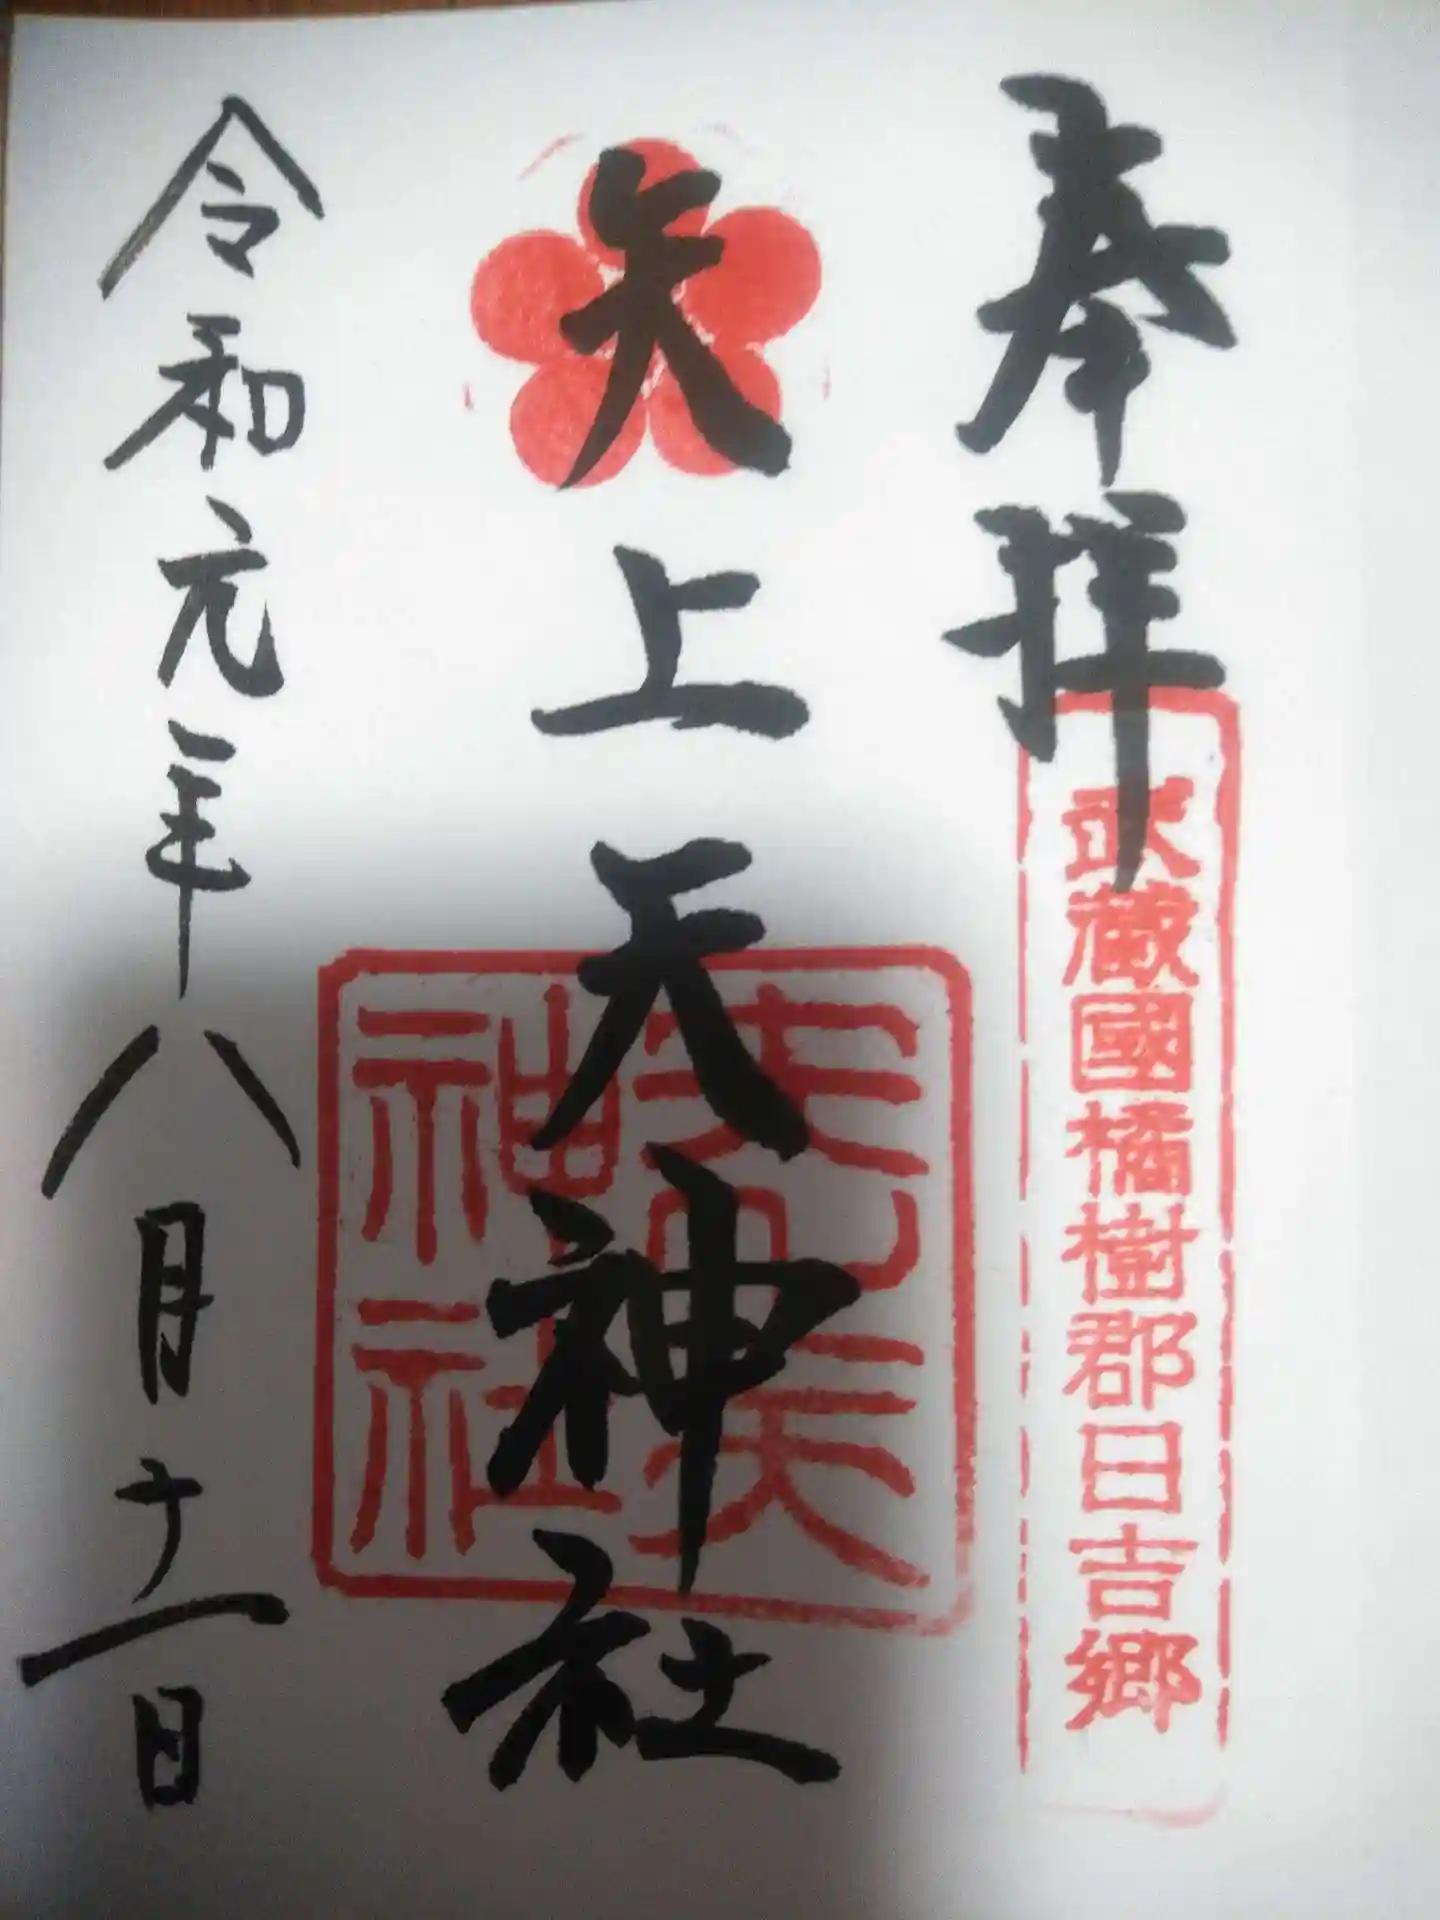 奉拝
武蔵國橘樹郡日吉郷
矢上天神社
神社
令和元年八月十一日